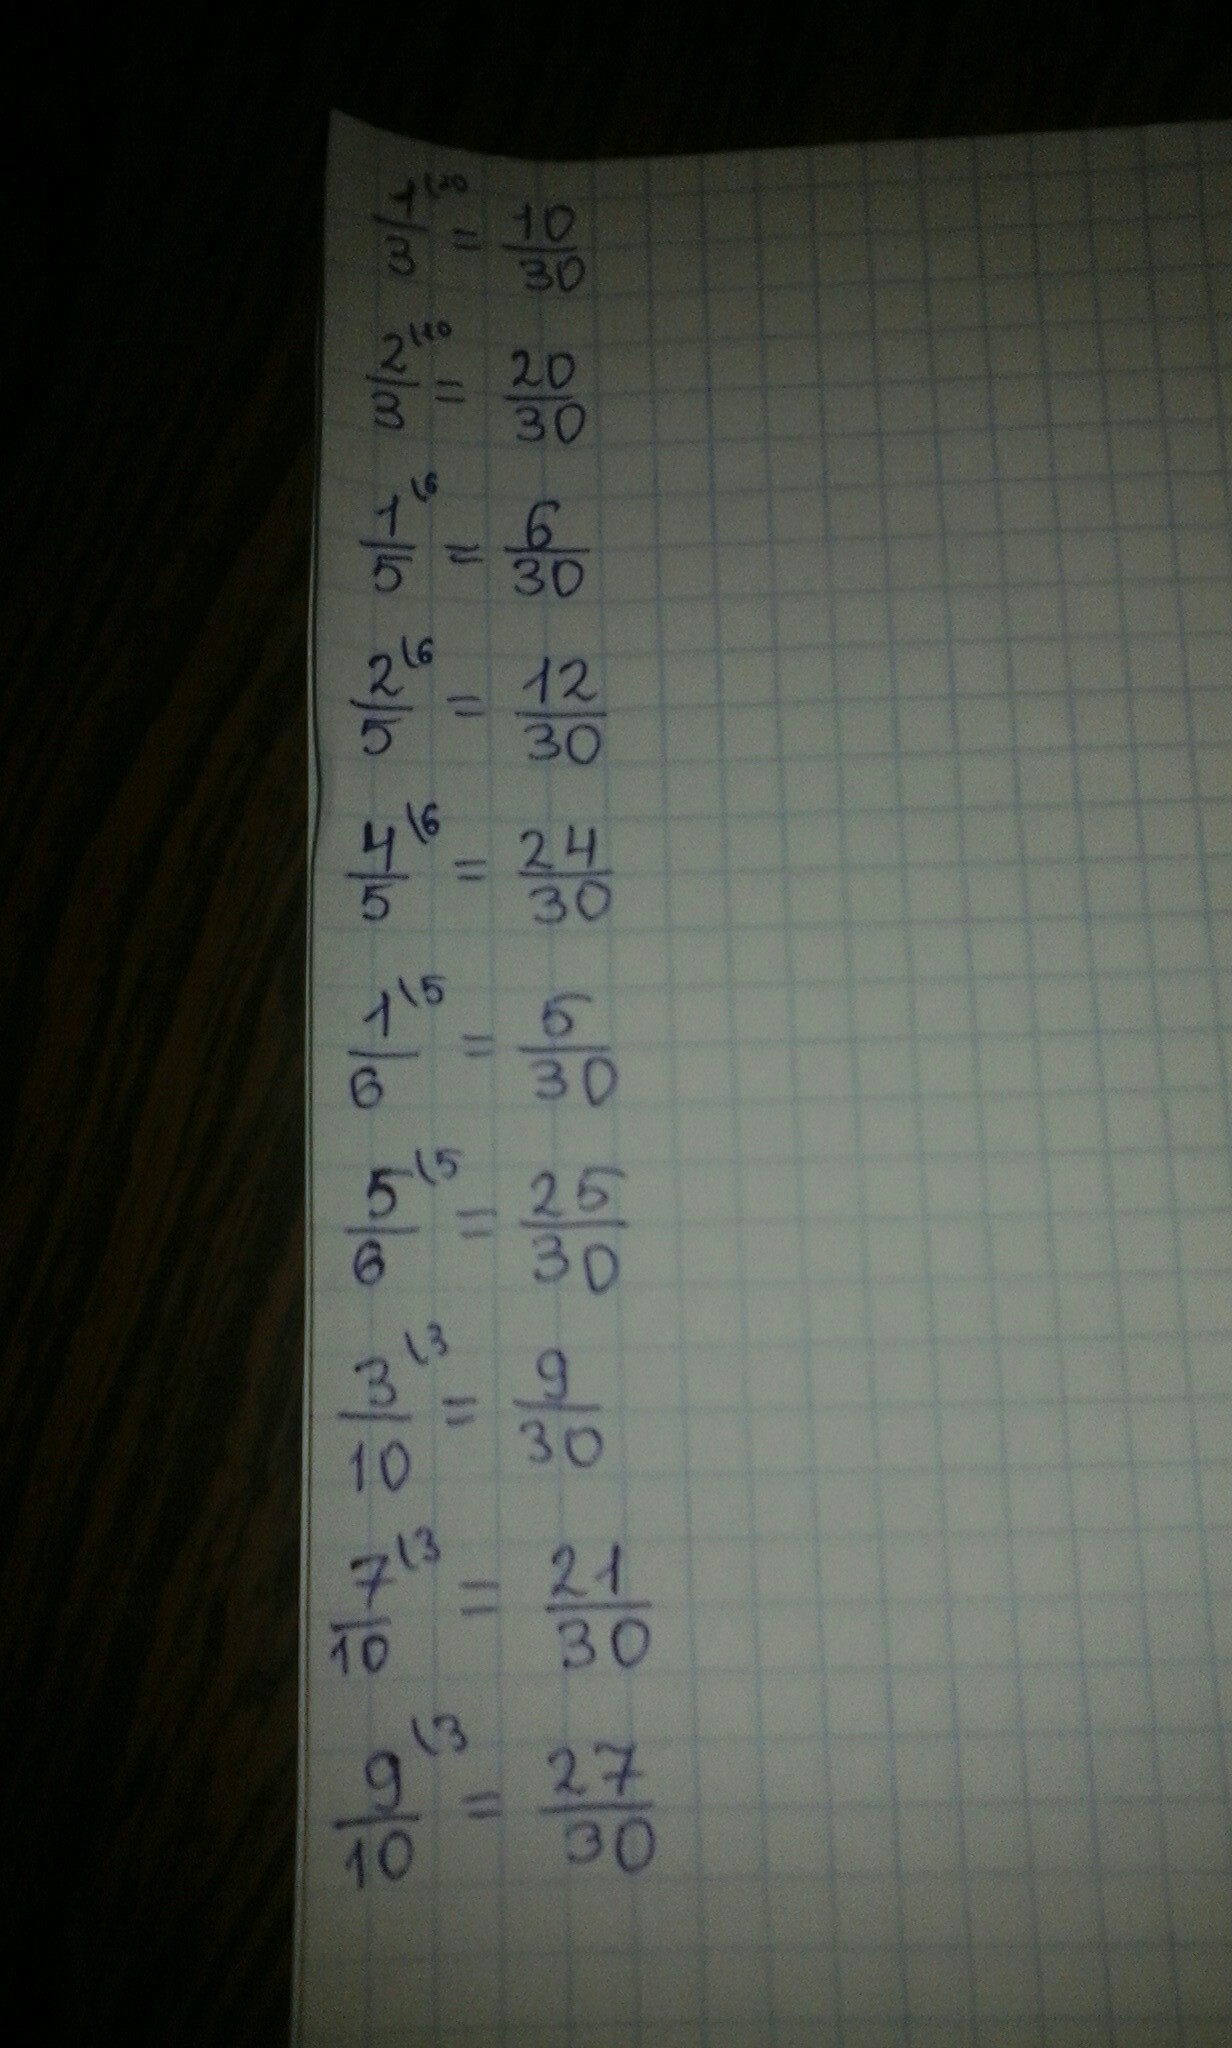 1/3 \10 = 10/30
2/3 \10 = 20/30
1/5 \6 = 6/30
2/5 \6 = 12/30
4/5 \6 = 24/30
1/6 \5 = 5/30
5/6 \5 = 25/30
3/10 \3 = 9/30
7/10 \3 = 21/30
9/10 \3 = 27/30